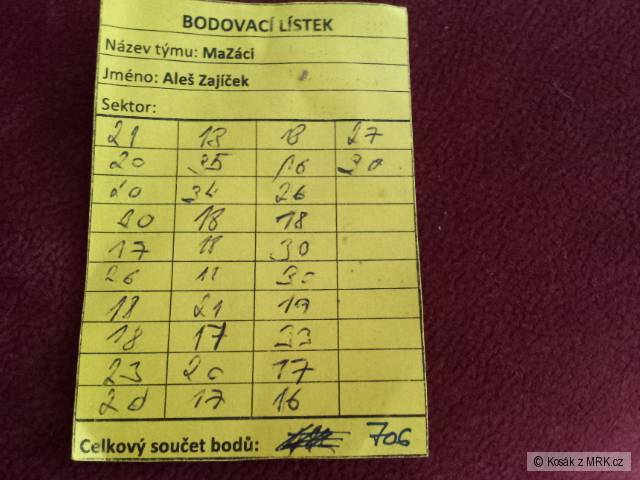 BODOVACÍ LÍSTEK
Název týmu: MaZáci
Jméno: Aleš Zajíček
Sektor:
21 18 18 27
20 35 16 30
20 34 26
30 18 18
17 18 30
26 18 30
18 21 19
18 17 33
23 20 17
20 17 16
Celkový součet bodů: 706
© Kosák z MRK.cz